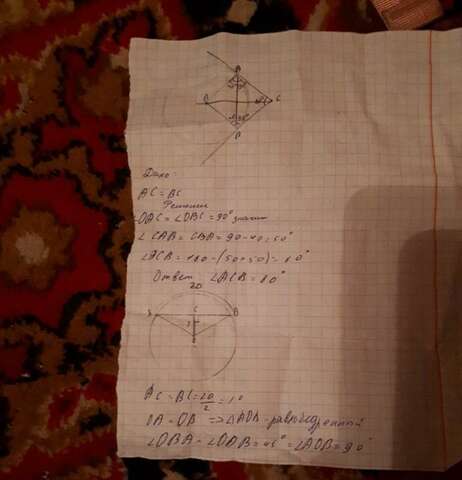 Дано:
AC = BC
Решение
∠OAC = ∠OBC = 90° значит
∠CAB = CBA = 90-40=50°
∠ACB = 180-(50+50) = 80°
Ответ ∠ACB = 80°
20
A C B
AC = BC = 20/2 = 10
OA = OB => ΔAOB - равнобедренный
∠OBA = ∠OAB = 45° = ∠AOB = 90°